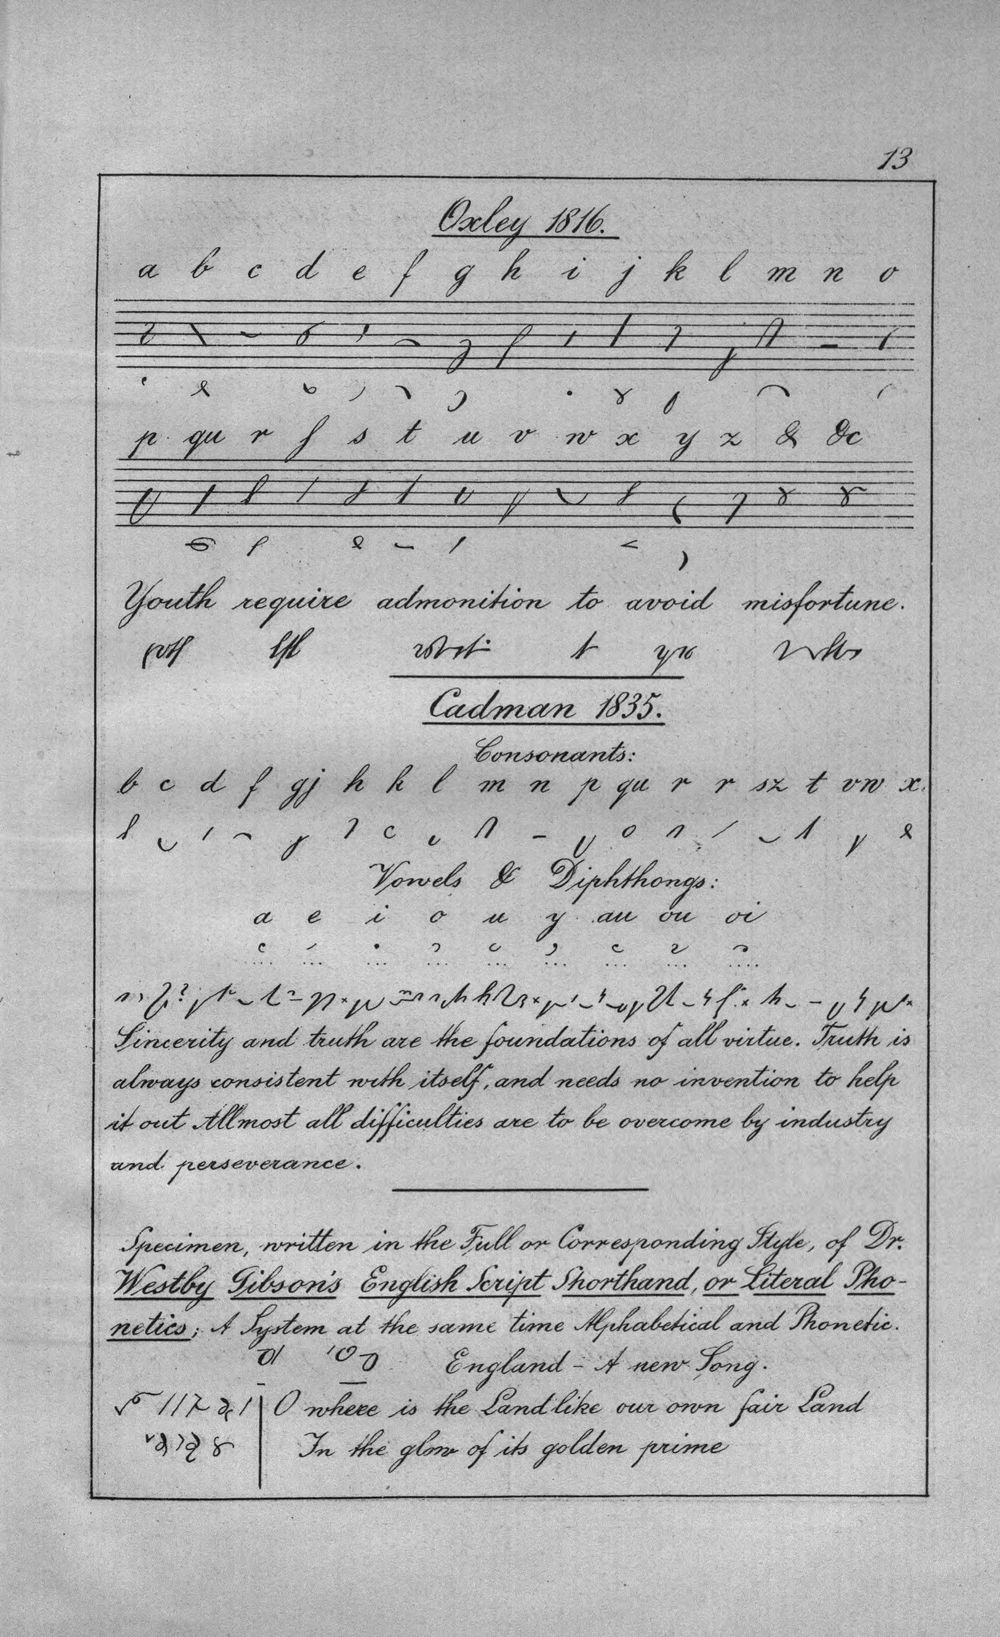 13
Oxley 1816.
a b c d e f g h i j k l m n o
p qu r ſ s t u v w x y z & &c
Youth require admonition to avoid misfortune.
Cadman 1835.
Consonants:
b c d f gj h k l m n p qu r r sz t vw x.
Vowels & Diphthongs:
a e i o u y au ou oi
Sincerity and truth are the foundations of all virtue. Truth is
always consistent with itself, and needs no invention to help
it out Allmost all difficulties are to be overcome by industry
and perseverance.
Specimen, written in the Full or Corresponding Style, of Dr.
Westby Gibson's English Script Shorthand, or Literal Pho-
netics; A System at the same time Alphabetical and Phonetic.
England - A new Song.
O where is the Land like our own fair Land
In the glow of its golden prime